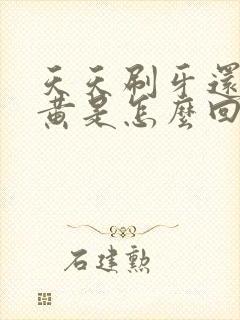 天天刷牙還
黃是怎麼回
石建勲